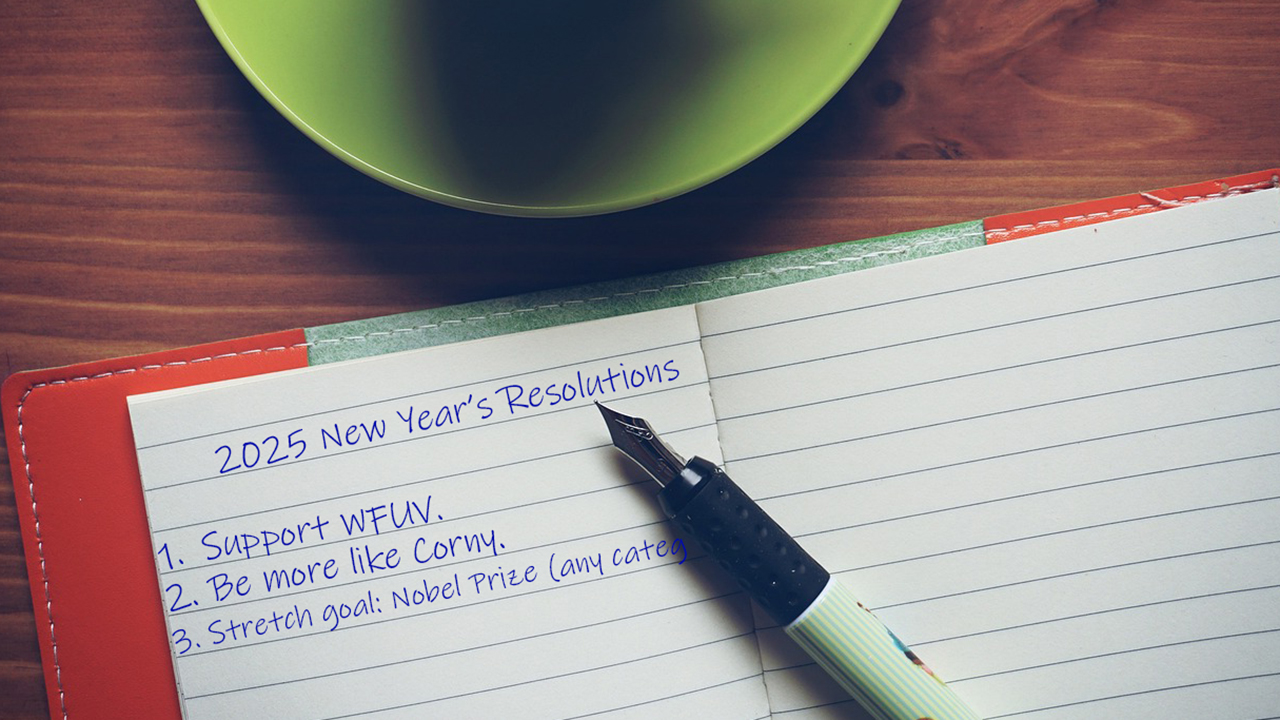 2025 New Year's Resolutions
1. Support WFUV.
2. Be more like Corny.
3. Stretch goal: Nobel Prize (any categ